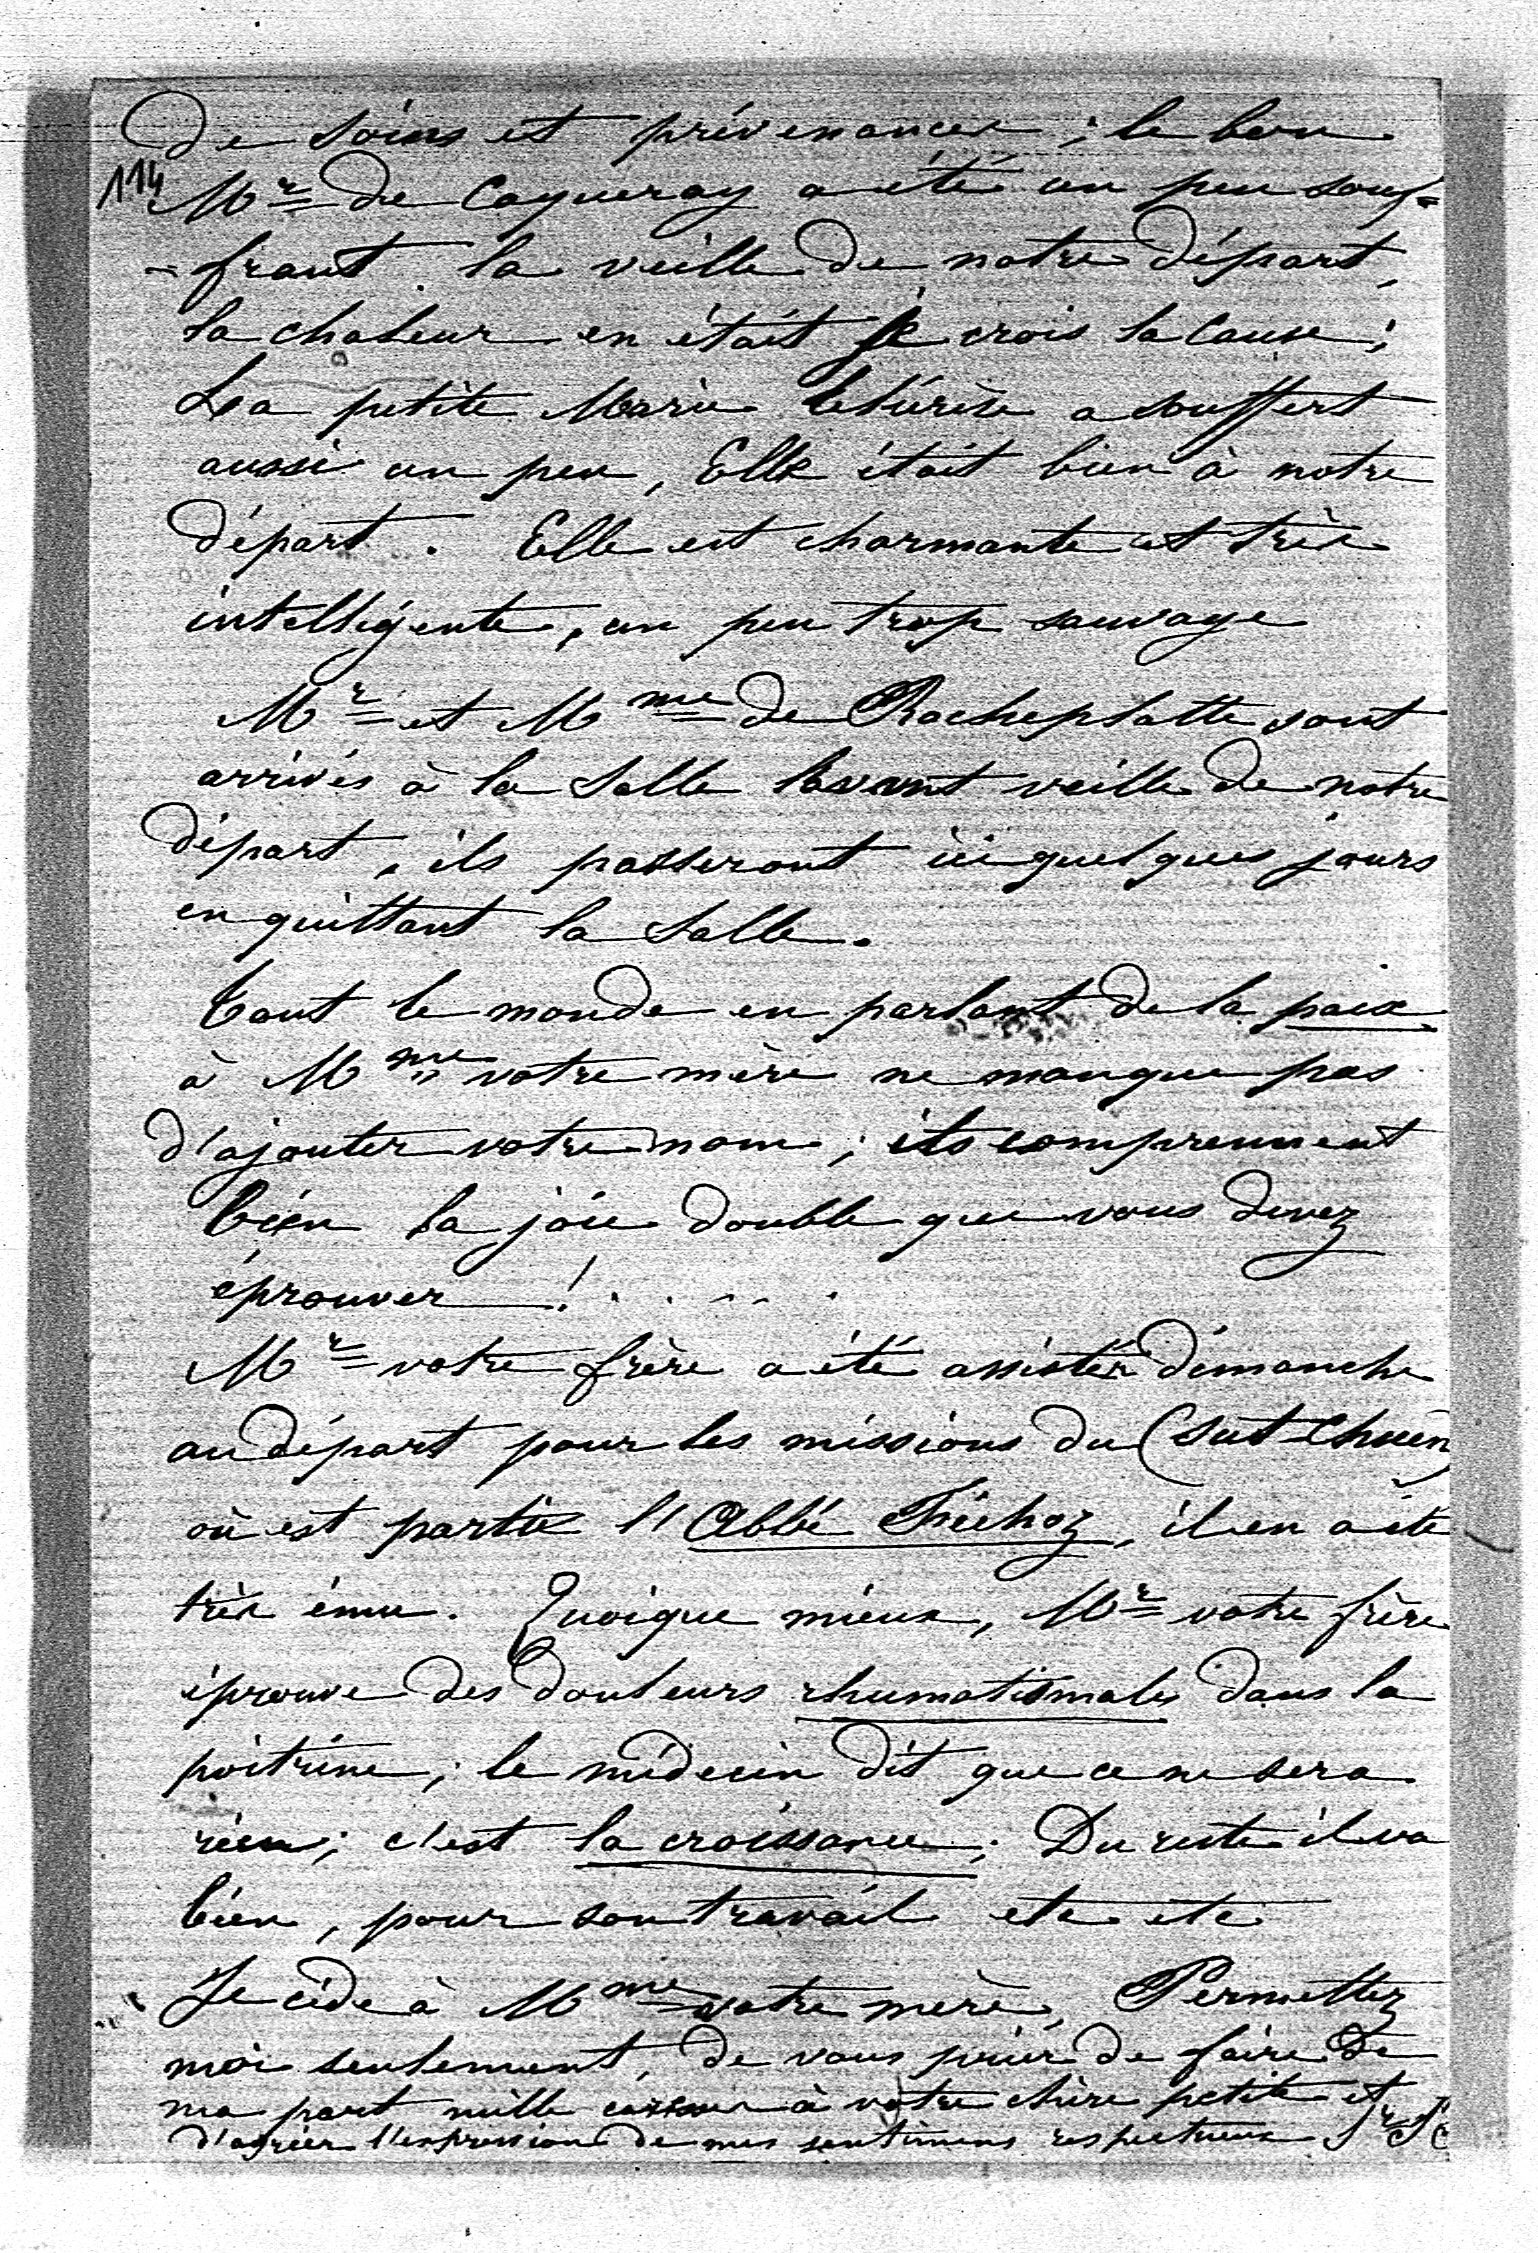 de soins et prévenances ; le bon
114
Mr de Caqueray a été un peu souf=
=frant la veille de notre départ,
la chaleur en était je crois la cause ;
La petite Marie Thérèse a souffert
aussi un peu, Elle était bien à notre
départ. Elle est charmante et très
intelligente, un peu trop sauvage
Mr et Mme de Rocheplatte sont
arrivés à la Salle l'avant veille de notre
départ, ils passeront ici quelques jours
en quittant la Salle.
Tout le monde en parlant de la paix
à Mme votre mère ne manque pas
d'ajouter votre nom ; ils comprennent
bien la joie double que vous devez
éprouver ! . . . . .
Mr votre frère a été assister dimanche
au départ pour les missions du (Sut-Chuen)
où est parti l'Abbé , il en a été
très ému. Quoique mieux, Mr votre frère
éprouve des douleurs rhumatismales dans la
poitrine ; le médecin dit que ce ne sera
rien ; c'est la croissance ; Du reste il va
bien, pour son travail etc etc
Je cède à Mme votre mère, Permettez
moi seulement, de vous prier de faire de
ma part mille à votre chère petite et
d'agréer l'expression de mes sentimens respectueux